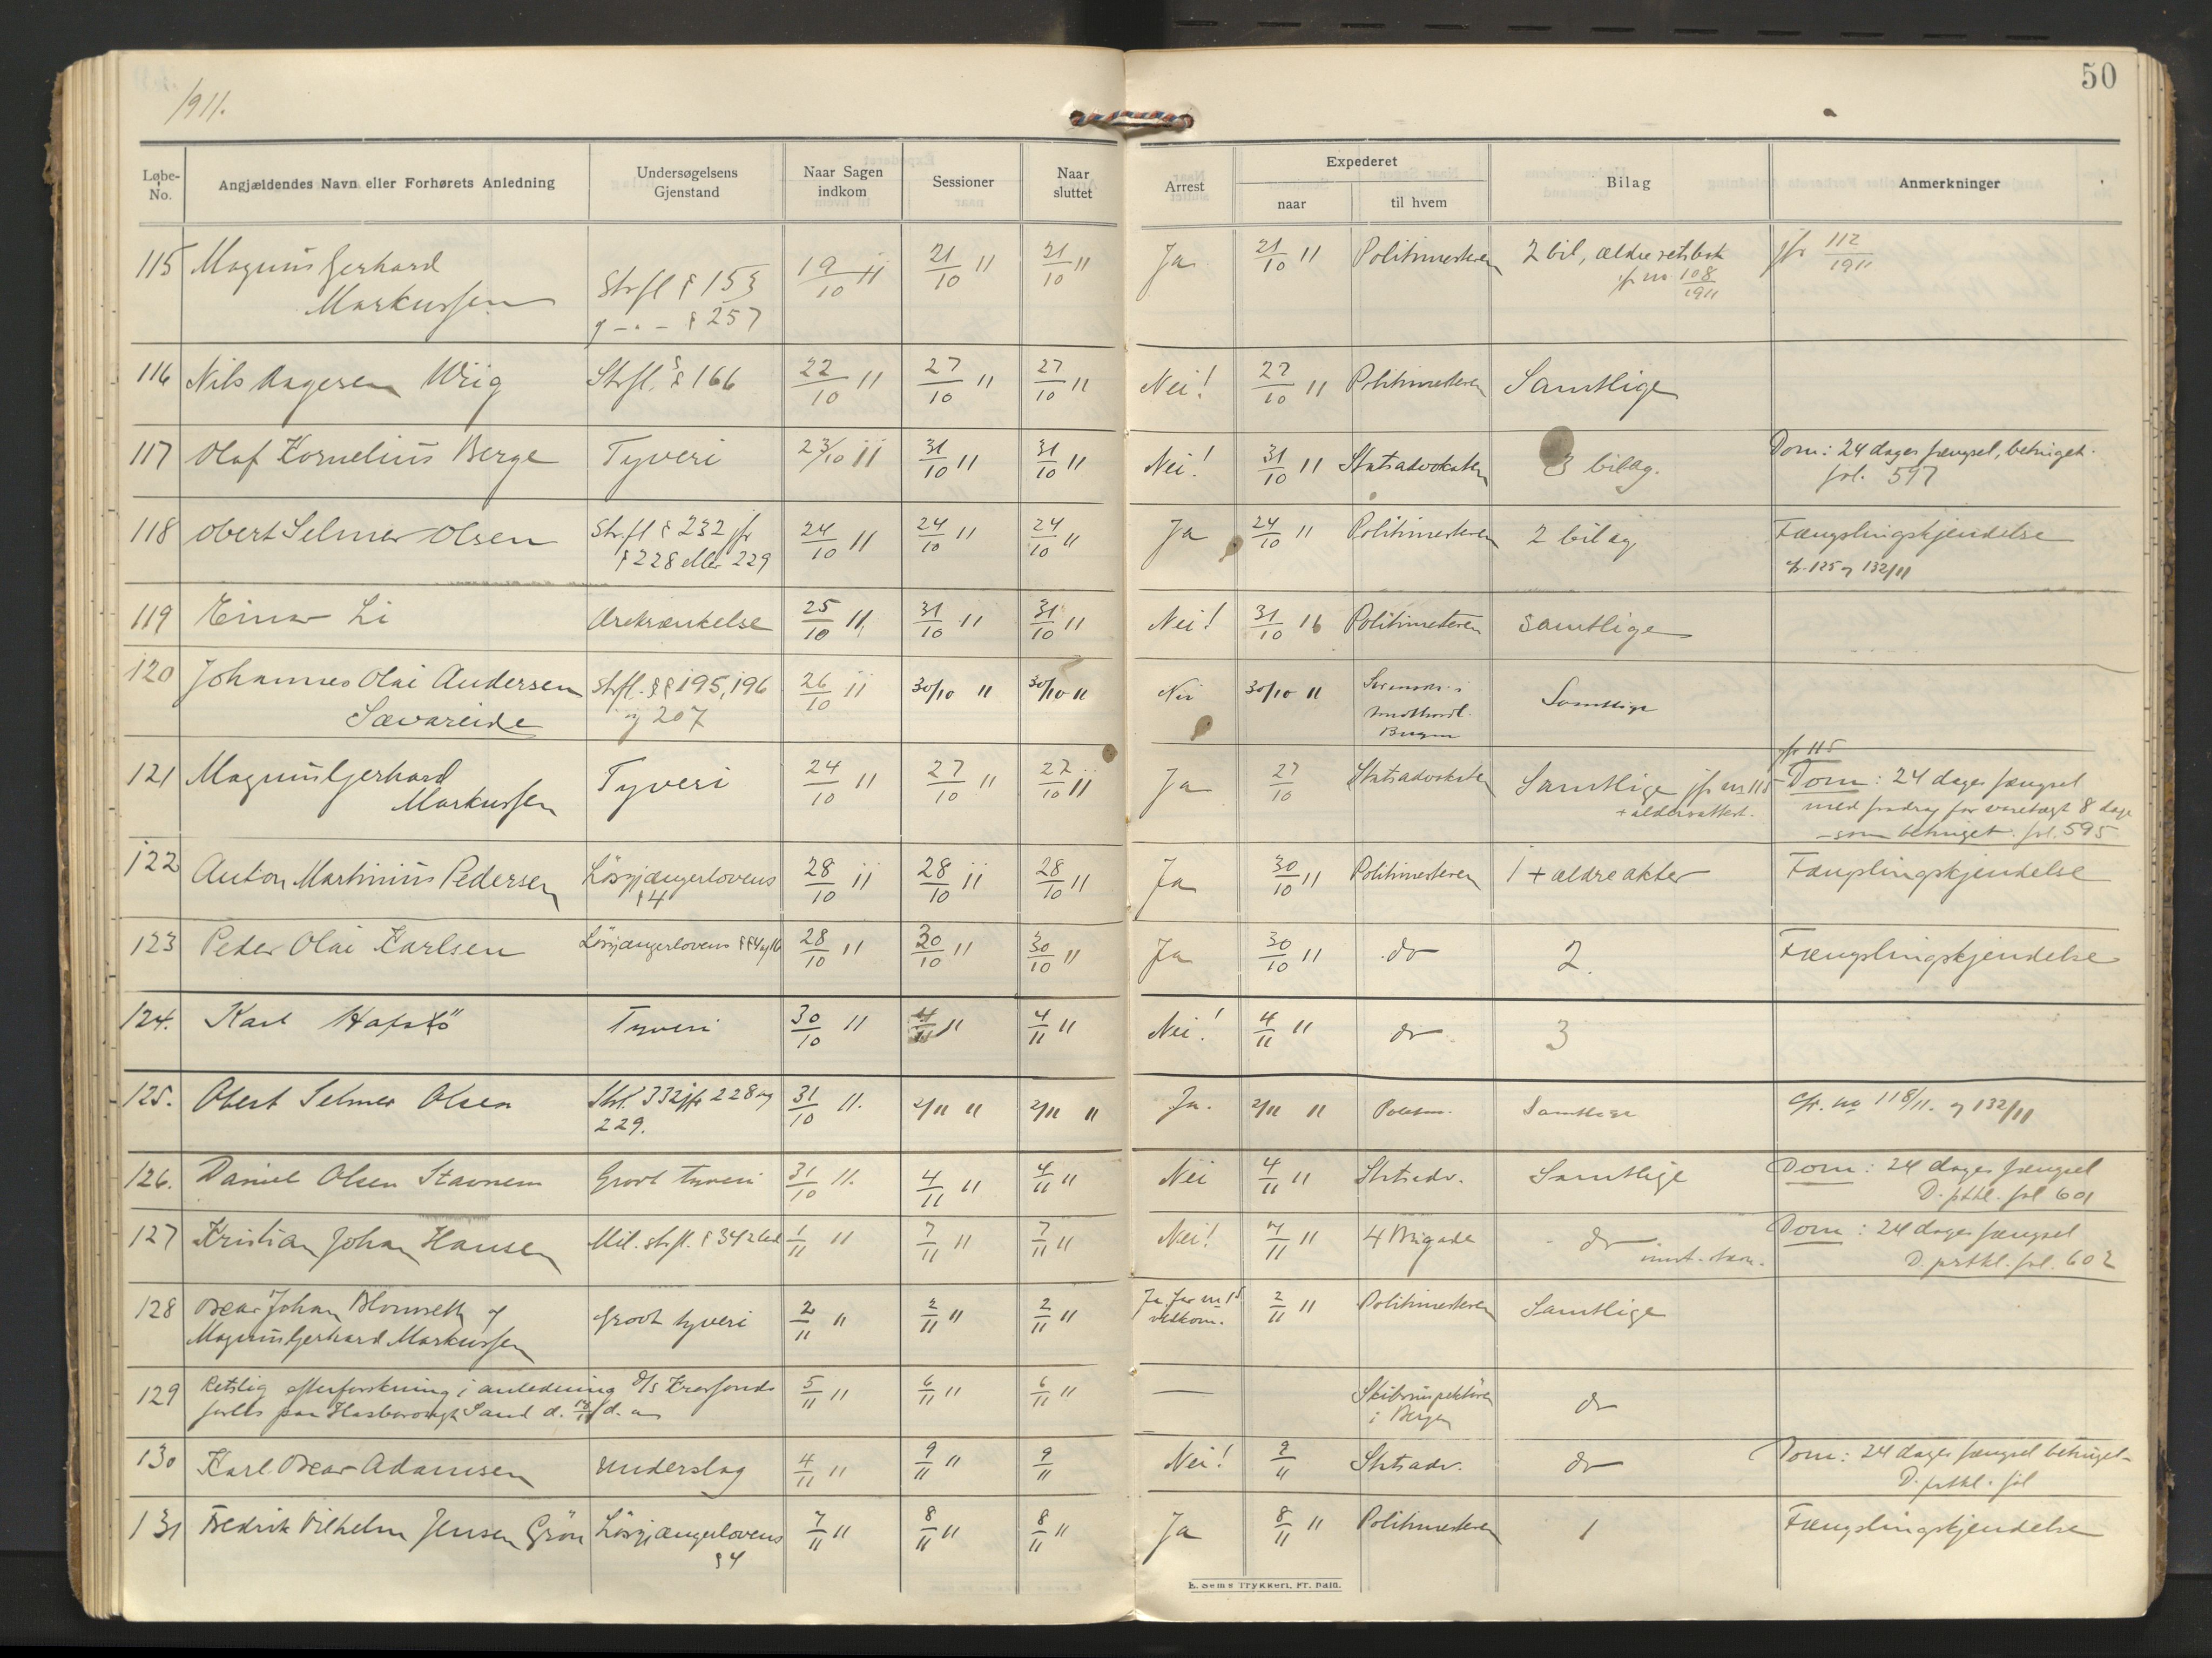 50
1911.
Løbe-No. Angjældendes Navn eller Forhørets Anledning Undersøgelsens Gjenstand Naar Sagen indkom Sessioner Naar sluttet Arrest Expederet naar til hvem Bilag Anmerkninger
115 Magnus Gerhard Markussen Strfl § 153 og -"- § 257 19/10 11 21/10 11 21/10 11 Ja 21/10 11 Politimesteren 2 bil, ældre retsbok jfr no 108/1911 jfr 112/1911
116 Nils Aagesen Wiig Strfl. § 166 22/10 11 27/10 11 27/10 11 Nei! 27/10 11 Politimesteren Samtlige
117 Olaf Kornelius Berge Tyveri 23/10 11 31/10 11 31/10 11 Nei! 31/10 11 Statsadvokaten 3 bilag. Dom: 24 dages fængsel, betinget. fol. 597
118 Obert Selmer Olsen Str.fl § 232 jfr § 228 eller 229 24/10 11 24/10 11 24/10 11 Ja 24/10 11 Politimesteren 2 bilag Fængslingskjendelse cfr. 125 og 132/11
119 Einar Li Ærekrænkelse 25/10 11 31/10 11 31/10 11 Nei! 31/10 11 Politimesteren Samtlige
120 Johannes Olai Andersen Sævareide Strfl. §§ 195, 196 og 207 26/10 11 30/10 11 30/10 11 Nei 30/10 11 Sorenskr. i Bergen Samtlige
121 Magnus Gerhard Markussen Tyveri 24/10 11 27/10 11 27/10 11 Ja 27/10 Statsadvokaten Samtlige jfr nr 115 + aldersattest. jfr 115 Dom: 24 dages fængsel med fradrag for varetægt 8 dage - som betinget. fol. 595
122 Anton Martinius Pedersen Løsgjængerlovens § 4 28/10 11 28/10 11 28/10 11 Ja 30/10 11 Politimesteren 1 + ældre akter Fængslingskjendelse
123 Peder Olai Karlsen Løsgjængerlovens §§ 4 og 16 28/10 11 30/10 11 30/10 11 Ja 30/10 11 do 2. Fængslingskjendelse
124. Karl Tyveri 30/10 11 4/11 11 4/11 11 Nei! 4/11 11 do 3
125. Obert Selmer Olsen Strl. 332 jfr 228 og 229. 31/10 11. 2/11 11 2/11 11 Ja. 2/11 11 Politim. Samtlige Cfr. no 118/11. og 132/11
126. Daniel Olsen Stavnem Grovt tyveri 31/10 11. 4/11 11 4/11 11 Nei 4/11 11 Statsadv. Samtlige Dom: 24 dages fængsel D. prtkl. fol 601
127 Kristian Johan Hansen Mil. strfl. § 34 2 led 1/11 11 7/11 11 7/11 11 Nei! 7/11 11 4 Brigade do Dom: 24 dages fængsel D. prtkl. fol. 602
128 Oscar Johan Blomseth og Magnus Gerhard Markussen Grovt tyveri 2/11 11 2/11 11 2/11 11 Ja for vedkom. 2/11 11 Politimesteren Samtlige
129 Retslig efterforskning i anledning D/S Kronfonds forlis paa Hasborough Sand d. d. a 5/11 11 6/11 11 6/11 11 — Skibsinspektøren i Bergen do
130 Karl Oscar Adamsen Underslag 4/11 11 9/11 11 9/11 Nei! 9/11 Statsadv. do Dom: 24 dages fængsel betinget D. prtkl. fol
131 Fredrik Vilhelm Jensen Grøn Løsgjængerlovens § 4 7/11 11 8/11 11 8/11 11 Ja 8/11 11 Politimesteren 1 Fængslingskjendelse
E. Sems Trykkeri, Fr.hald.